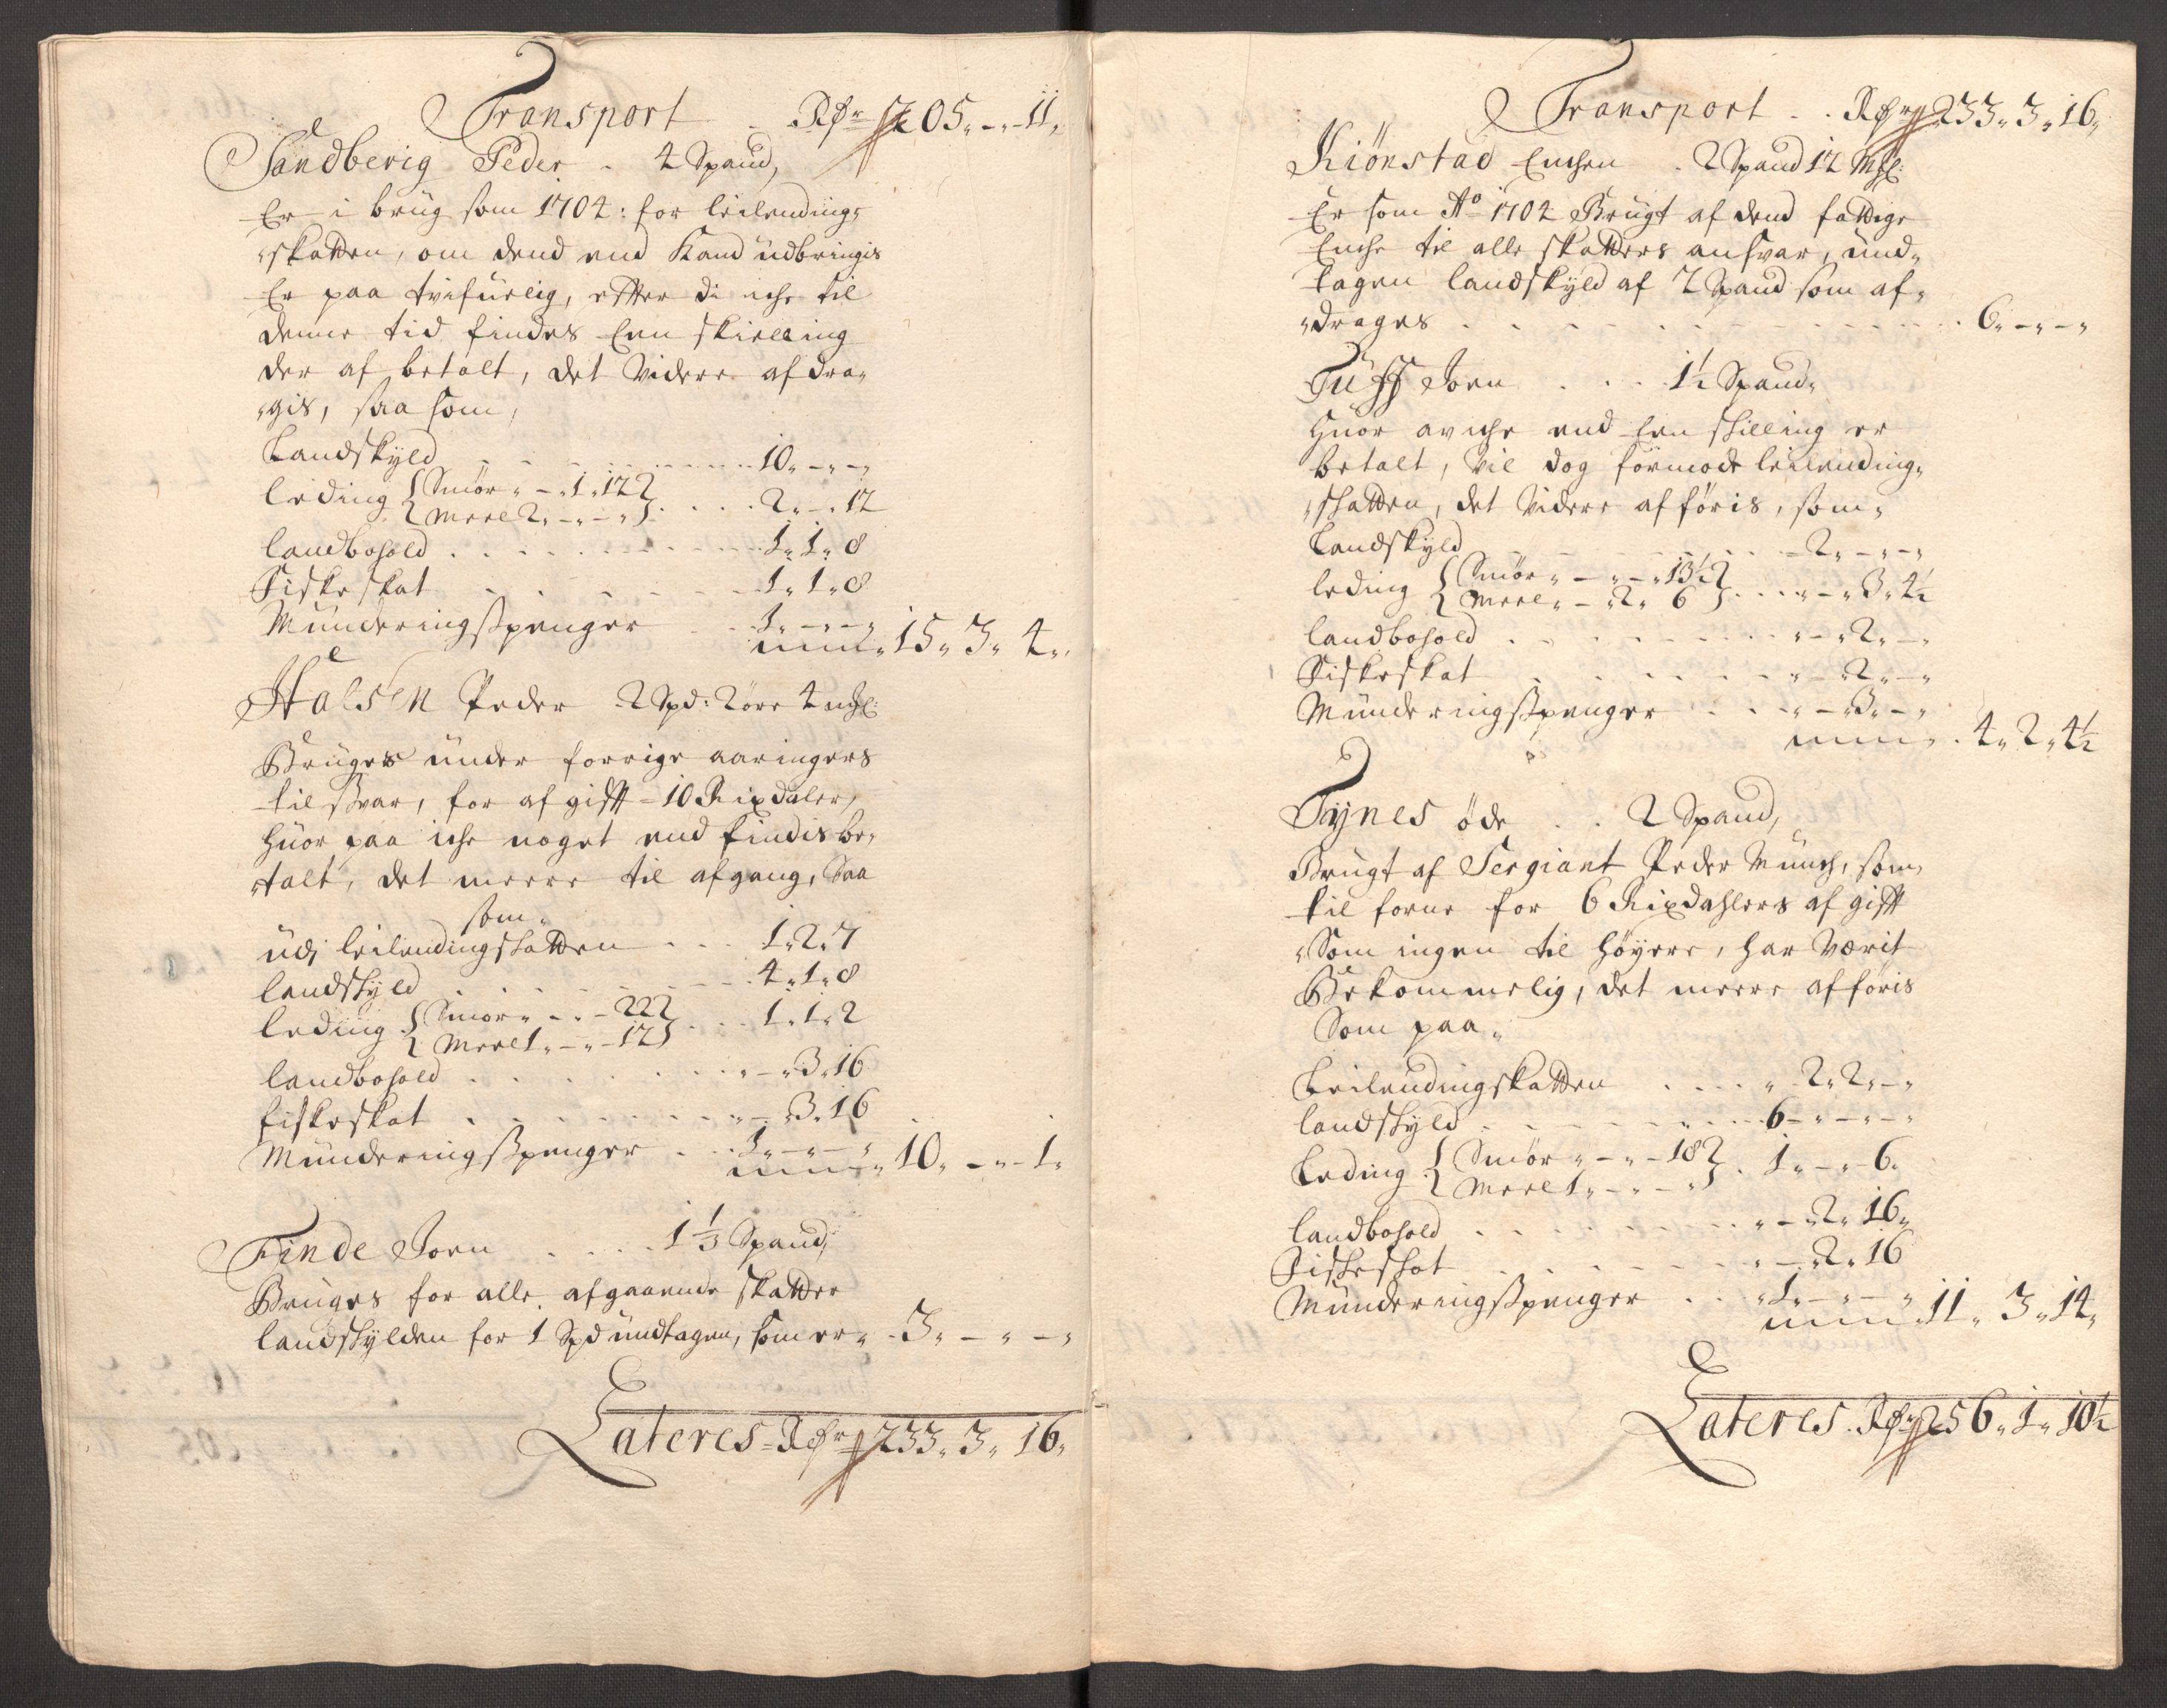 Transport - Rdr 205„-„11„
Sandberig Peder - 4 Spand,
Er i brug som 1704: for leilendings
„skatten, om dend end Kand udbringis
Er paa tvifuelig, effter di iche til
denne tid findes Een skielling
der af betalt, det Videre afdra„
„gis, saa som,
Landskyld 10„-„-„
leding { Smør„-„1„12 } { Meel 2„-„-„ } 2„-„12
landbohold 1„1„8
Fiskeskat 1„1„8
Munderingsspenger 1„-„-„
15„3„4„
Halsen Peder 2 Spd: 2 öre 4 mkl:
Bruges under forrige aaringers
tilsvar, for afgifft - 10 Rixdaler,
huor paa iche noget end findis be„
„talt, det meere til afgang, Saa
som„
udj leilendingskatten 1„2„7
landskyld 4„1„8
leding { Smør„-„-22 } { Meel 1„-„-12 } 1„1„2
landbohold „-„3„16
fiskeskat „-„3„16
Munderingsspenger 1„-„-„
10„-„-1„
Finde Joen 1 1/3 Spand,
Bruges for alle afgaaende skatter
landskylden for 1 Spd undtagen, som er„ 3„-„-„
Lateres - Rdr 233„3„16„
Transport - Rdr 233„3„16„
Kiönstad Enchen - 2 Spand 12 Mkl:
Er som Ao 1704 Brugt af dend fattige
Enche til alle skatters ansvar, und„
tagen landskyld af 2 Spand som af„
„drages 6„-„-„
Tuff Joen 1½ Spand„
Huor av iche end Een skilling er
betalt, vil dog formode leilending„
„skatten, det Videre afföris, som„
Landskyld 2„-„-„
leding { Smør„-„-„13½ } { Meel„-„2„6 } „-„3„4½
landbohold „-„2„-„
Fiskeskat „-2„-„
Munderingsspenger „-3„-„
4„2„4½
Tynes öde 2 Spand,
Brugt af Sergiant Peder Munch, som
tilforne for 6 Rixdahlers afgifft
„Som ingen til höyere, har værit
Bekommelig, det meere afföris
Som paa„
Leilendingskatten „2„2„-„
landskyld 6-„-„-„
Leding { Smør„-„-18 } { Meel 1„-„-„ } 1„-„6„
landbohold „-„2„16„
Fiskeskat „-„2„16
Munderingsspenger „1„-„-„
11„3„14„
Lateres - Rdr 256„1„10½